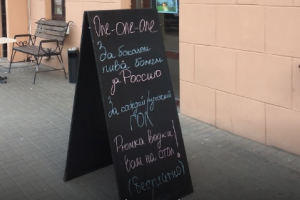 One-one-one
За бокалом
пива болеем
за Россию
За каждый русский
ГОЛ
Рюмка водки
вам на стол!
(бесплатно)